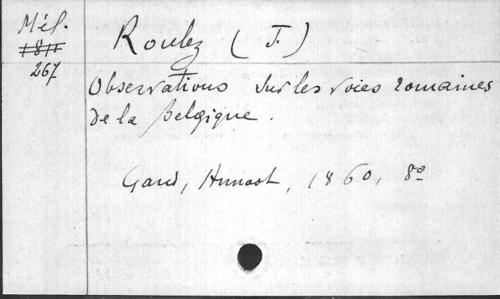 Mél.
811
267
Roulez (J.)
Observations sur les voies romaines
de la Belgique.
Gand, Annoot, 1860, 8º